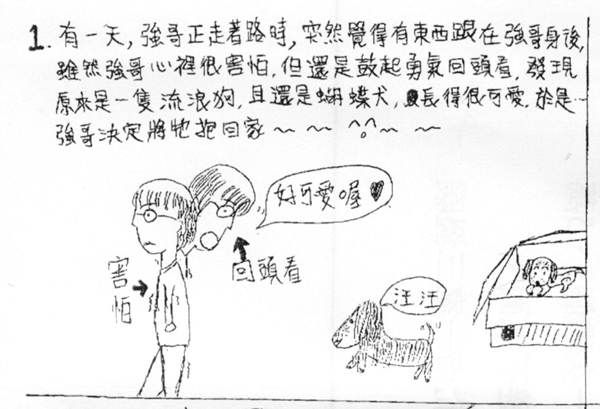 1. 有一天,強哥正走著路時,突然覺得有東西跟在強哥身後,
雖然強哥心裡很害怕,但還是鼓起勇氣回頭看,發現
原來是一隻流浪狗,且還是蝴蝶犬,長得很可愛,於是
強哥決定將牠抱回家~~^o^~~
好可愛喔♥
回頭看
害怕
汪汪